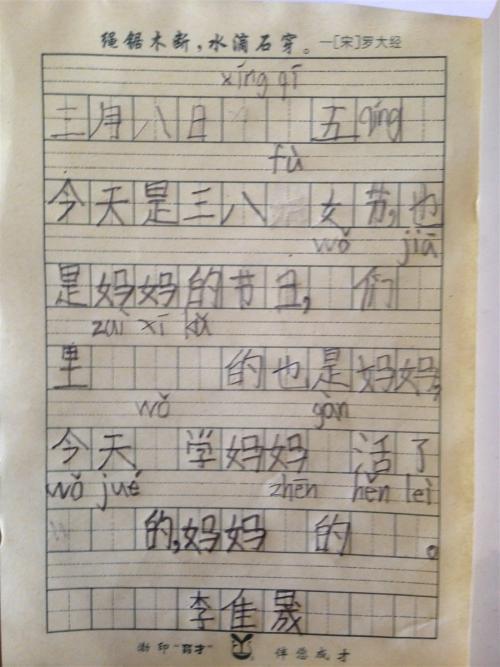 绳锯木断，水滴石穿。—[宋]罗大经
xīng qī
三月八日 五 qíng
fù
今天是三八 女节，也
wǒ jiā
是妈妈的节日， 们
zuì xī
里 的也是妈妈，
wǒ gàn
今天 学妈妈 活了
wǒ jué zhēn hěn lèi
的，妈妈 的 。
李隹晟
伴您成才